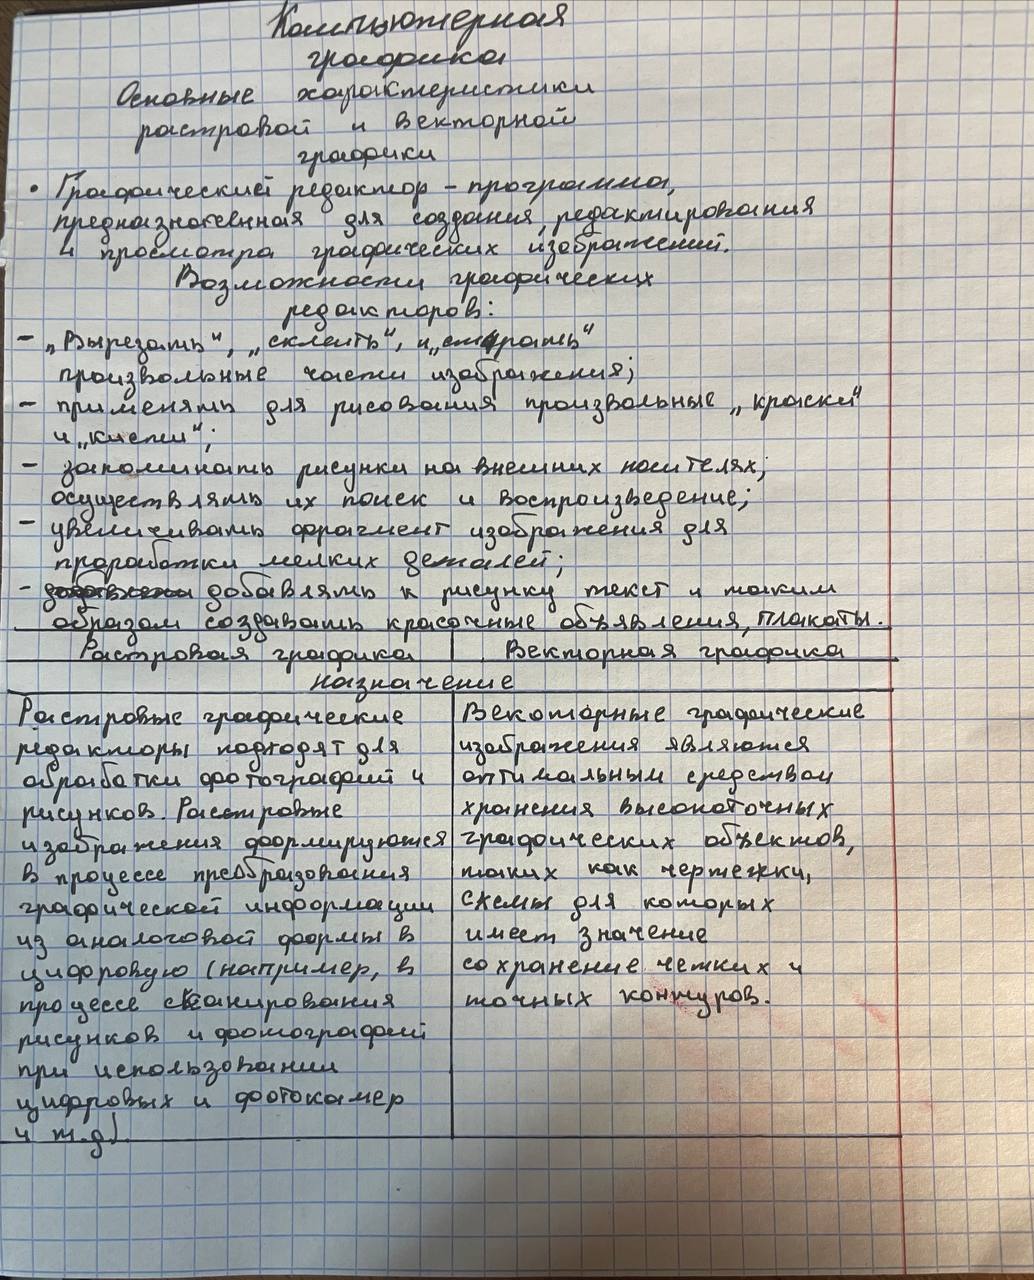 Компьютерная
графика
Основные характеристики
растровой и векторной
графики
• Графический редактор – программа,
предназначенная для создания, редактирования
и просмотра графических изображений.
Возможности графических
редакторов:
– „Вырезать", „склеить", и „стирать"
произвольные части изображения;
– применять для рисования произвольные „краски"
и „кисти";
– запоминать рисунки на внешних носителях;
осуществлять их поиск и воспроизведение;
– увеличивать фрагмент изображения для
проработки мелких деталей;
– добавлять к рисунку текст и таким
образом создавать красочные объявления, плакаты.
Растровая графика
Векторная графика
Назначение
Растровые графические
редакторы подходят для
обработки фотографий и
рисунков. Растровые
изображения формируются
в процессе преобразования
графической информации
из аналоговой формы в
цифровую (например, в
процессе сканирования
рисунков и фотографий
при использовании
цифровых и фотокамер
и т.д).
Векторные графические
изображения являются
оптимальным средством
хранения высокоточных
графических объектов,
таких как чертежки,
схемы для которых
имеет значение
сохранение четких и
точных контуров.